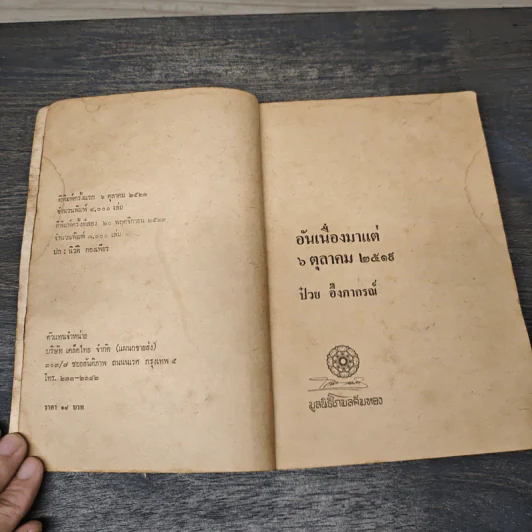 ตีพิมพ์ครั้งแรก ๖ ตุลาคม ๒๕๒๓
จำนวนพิมพ์ ๕,๐๐๐ เล่ม
ตีพิมพ์ครั้งที่สอง ๒๐ พฤศจิกายน ๒๕๒๓
จำนวนพิมพ์ ๓,๐๐๐ เล่ม
ปก : นิวัติ กองเพียร
ตัวแทนจำหน่าย
บริษัท เคล็ดไทย จำกัด (แผนกขายส่ง)
ซอยสันติภาพ ถนนนเรศ กรุงเทพ ๕
โทร.
ราคา ๑๕ บาท
อันเนื่องมาแต่
๖ ตุลาคม ๒๕๑๙
ป๋วย อึ๊งภากรณ์
มูลนิธิโกมลคีมทอง